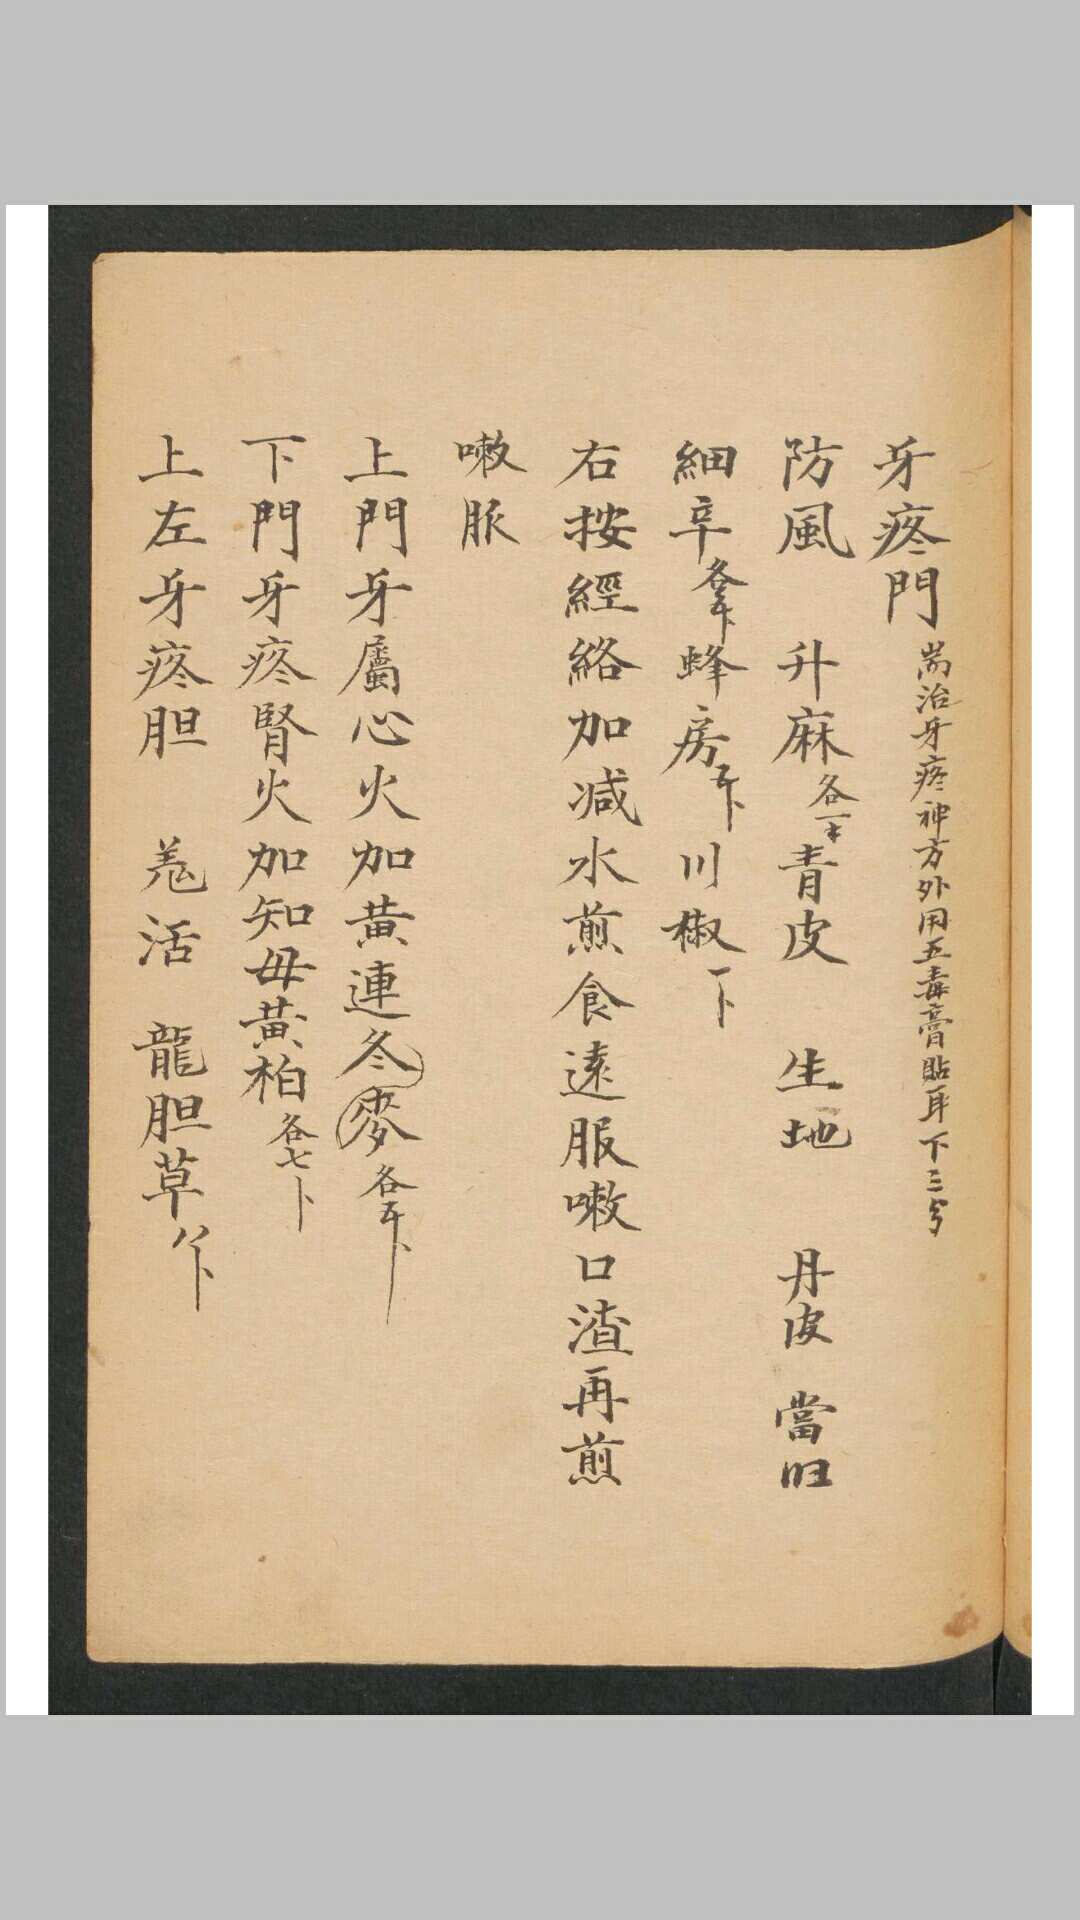 牙疼門 耑治牙疼神方外用五毒膏貼耳下三分
防風 升麻各一 青皮 生地 丹皮 當归
細辛各五卜 蜂房五卜 川椒一卜
右按經絡加减水煎食遠服嗽口渣再煎
嗽脈
上門牙屬心火加黃連冬麥各五卜
下門牙疼腎火加知毋黃柏各七卜
上左牙疼胆 羌活 龍胆草八卜